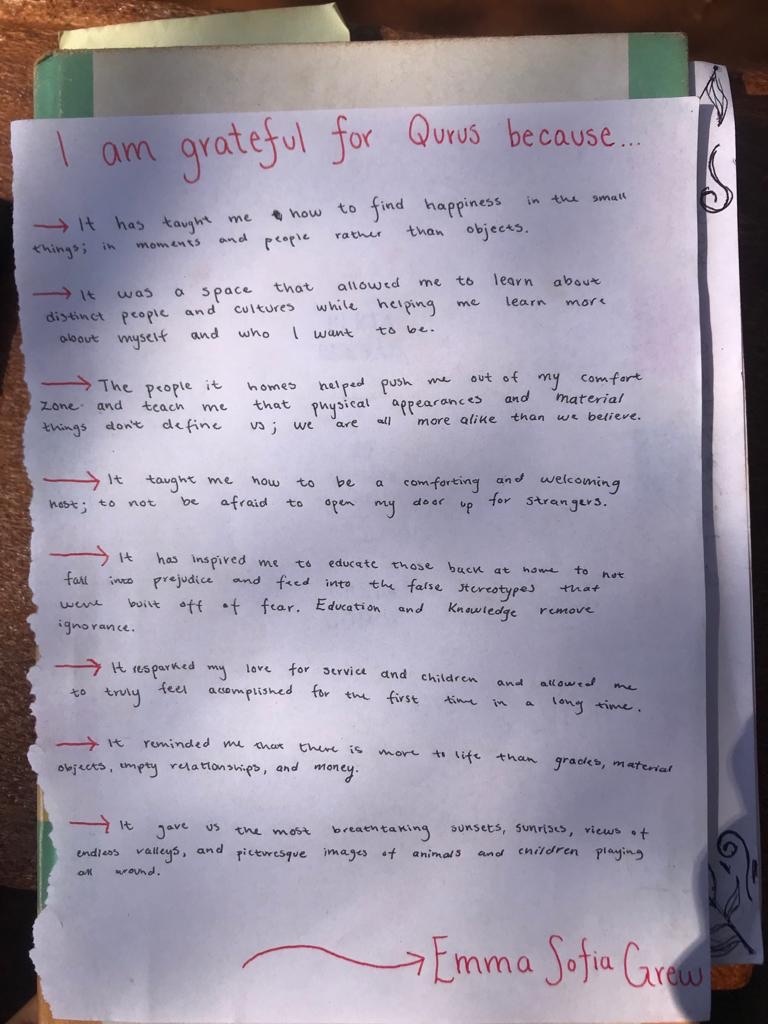 I am grateful for Qurus because...
→ It has taught me how to find happiness in the small
things; in moments and people rather than objects.
→ It was a space that allowed me to learn about
distinct people and cultures while helping me learn more
about myself and who I want to be.
→ The people it homes helped push me out of my comfort
zone and teach me that physical appearances and material
things don't define us; we are all more alike than we believe.
→ It taught me how to be a comforting and welcoming
host; to not be afraid to open my door up for strangers.
→ It has inspired me to educate those back at home to not
fall into prejudice and feed into the false stereotypes that
were built off of fear. Education and Knowledge remove
ignorance.
→ It resparked my love for service and children and allowed me
to truly feel accomplished for the first time in a long time.
→ It reminded me that there is more to life than grades, material
objects, empty relationships, and money.
→ It gave us the most breathtaking sunsets, sunrises, views of
endless valleys, and picturesque images of animals and children playing
all around.
→ Emma Sofia Grew